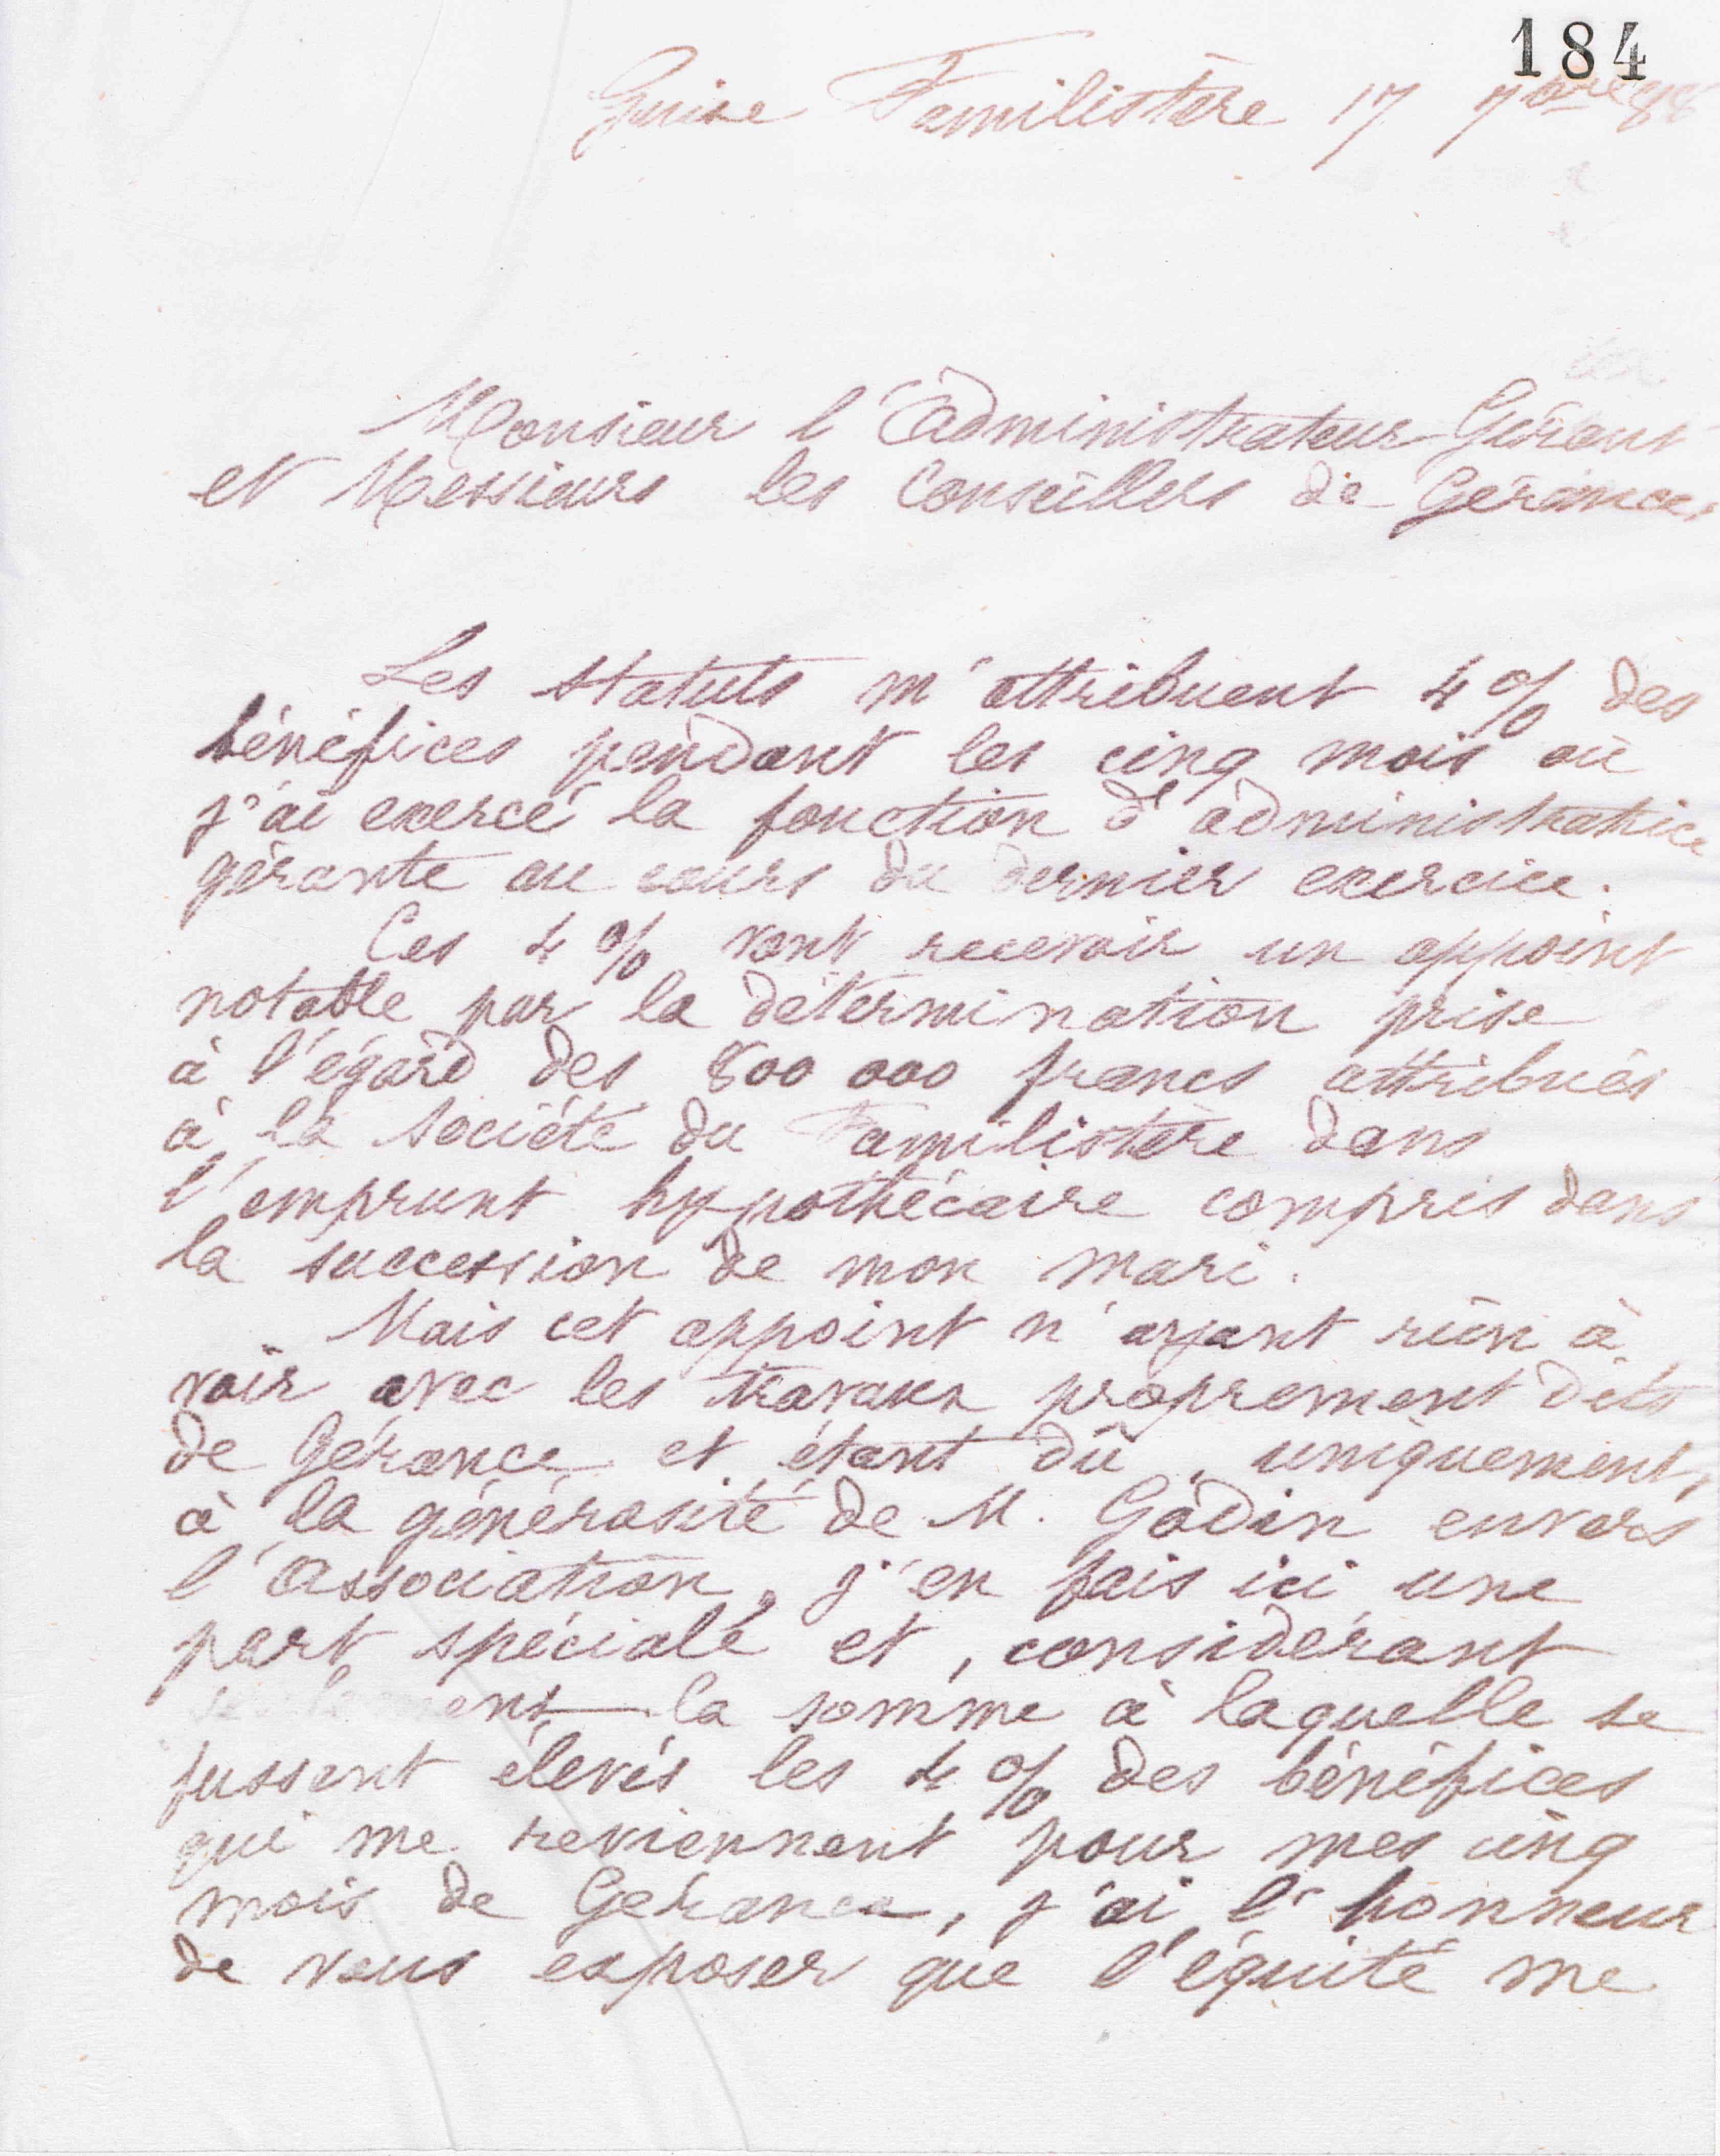 184
Guise Familistère 17 7bre 88
Monsieur l'Administrateur-Gérant
et Messieurs les Conseillers de Gérance,
Les statuts m'attribuent 4 % des
bénéfices pendant les cinq mois où
j'ai exercé la fonction d'administratrice
gérante au cours du dernier exercice.
Ces 4 % vont recevoir un appoint
notable par la détermination prise
à l'égard des 800 000 francs attribués
à la société du Familistère dans
l'emprunt hypothécaire compris dans
la succession de mon mari.
Mais cet appoint n'ayant rien à
voir avec les travaux proprement dits
de Gérance et étant dû, uniquement,
à la générosité de M. Godin envers
l'Association, j'en fais ici une
part spéciale et, considérant
seulement la somme à laquelle se
fussent élevés les 4 % des bénéfices
qui me reviennent pour mes cinq
mois de Gérance, j'ai l'honneur
de vous exposer que l'équité me